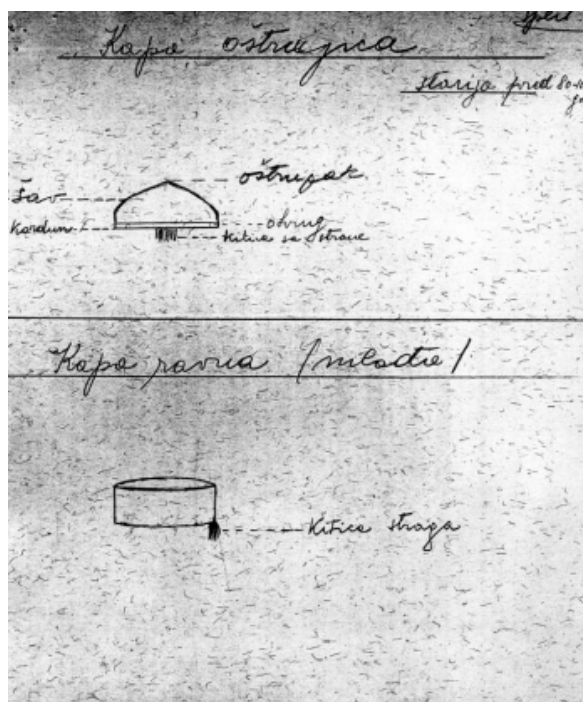 Kapa oštrujica
starija pred 80
oštrujak
šav
kordun
obrug
kitice sa strane
Kapa ravna /mlađe/
kitica straga